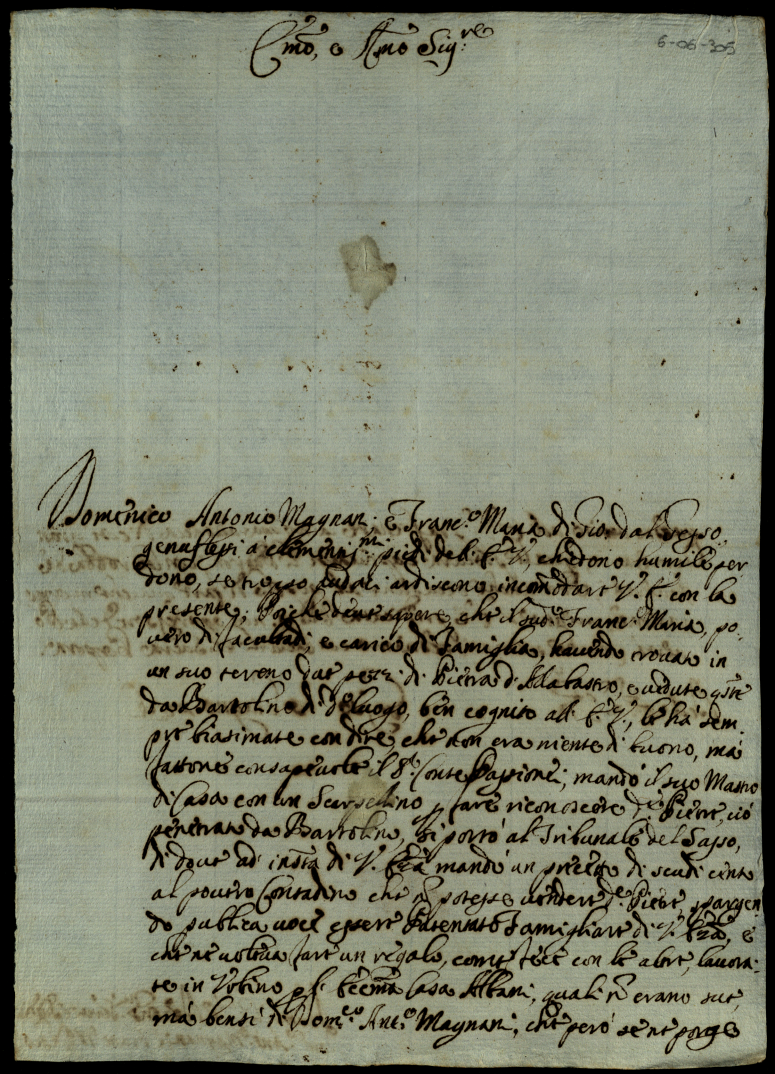 Emo, e Rmo Sig.re
6-06-305
Domenico Antonio Magnani, e Franc.o Maria di Gio: dal Sasso
genuflessi á clementis.mi piedi dell' E. V., chiedono humile per
dono, se troppo audaci ardiscono incom̃odare V. E. con la
presente; Poiche deve sapere, che il sud.o Franc.o Maria, po
vero di facultadi, e carico di famiglia, havendo trovate in
un suo terreno due pezzi di Pietra d'Alabastro, e vedute q̃ste
da Bartolino di d.o luogo, ben cognito all' E. V., le há sem
pre biasimate con dire, che non era niente di buono, má
fattone consapevole il S.r Conte Passionei, mandó il suo Mastro
di Casa con un Scarselino p fare riconoscere d.e Pietre, ció
penetrato da Bartolino, si portó al Tribunale del Sasso,
di dove ad inst.a di V. Ecc.za mandó un precetto di scudi cento
al povero Contadino che ñ potesse vendere d.e Pietre, spargen
do publica voce essere Patentato Famigliare di V. Ecc.za, e
che ne voleva fare un regalo, come fece con le altre, lavora
te in Urbino p l' Ecc.ma Casa Albani, quali ñ erano sue,
má bensì di Dom.co Ant.o Magnani, che peró se ne porge